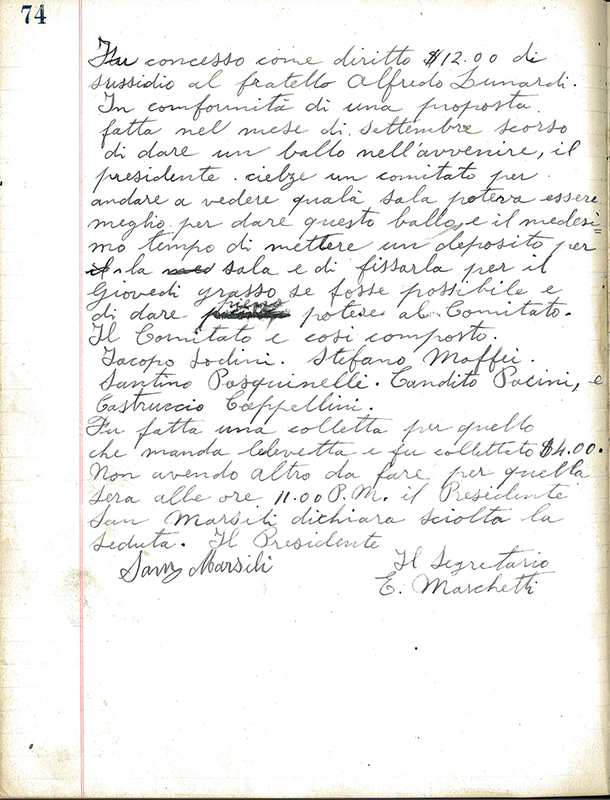 74
Fu concesso come diritto $12.00 di
sussidio al fratello Alfredo Lunardi.
In comformità di una proposta
fatta nel mese di settembre scorso
di dare un ballo nell'avvenire, il
presidente cielze un comitato per
andare a vedere qualà sala poteva essere
meglio per dare questo ballo, e il medesi=
mo tempo di mettere un deposito per
la sala e di fissarla per il
Giovedi grasso se fosse possibile e
di dare pieno potere al Comitato.
Il Comitato e cosi composto.
Iacopo Sodini. Stefano Maffei.
Santino Pasquinelli. Candito Pacini, e
Castruccio Cappellini.
Fu fatta una colletta per quello
che manda e fu collettato $4.00.
Non avendo altro da fare per quella
sera alle ore 11.00 P.M. il Presidente
San Marsili dichiara sciolta la
seduta. Il Presidente
Sam Marsili
Il Segretario
E. Marchetti